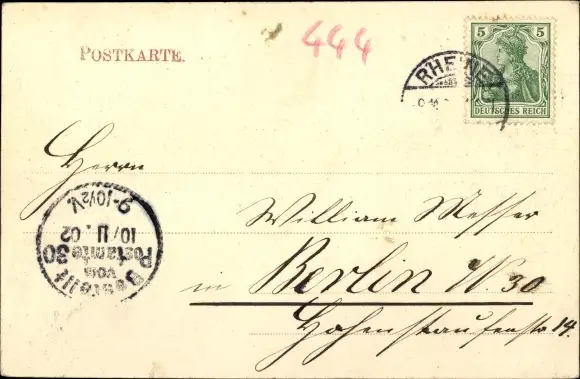 POSTKARTE.
444
5 5
DEUTSCHES REICH
RHEINE
Herrn
William Messer
in Berlin W. 30
Hohenstaufenstr 14.
Bestellt
vom
Postamte 30
10/11. 02
9-10½V.